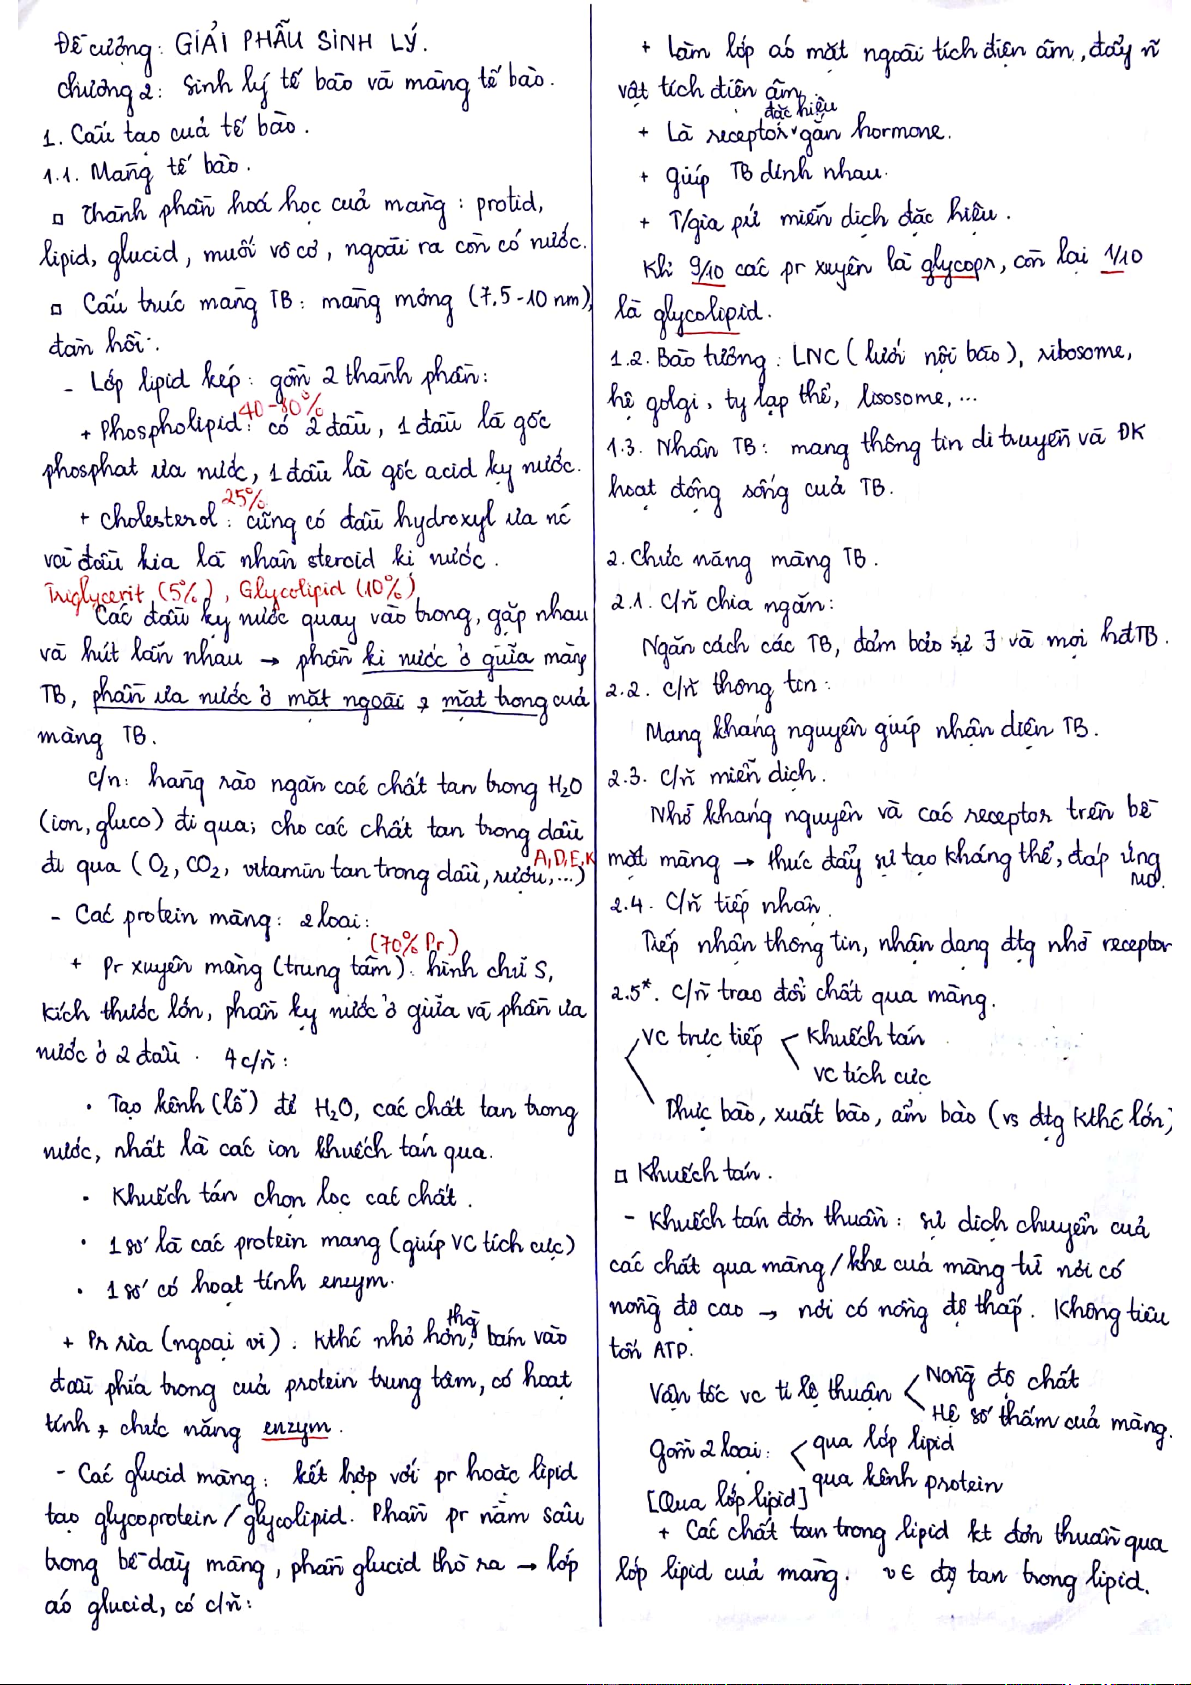 Đề cương: GIẢI PHẪU SINH LÝ.
Chương 2: Sinh lý tế bào và màng tế bào.
1. Cấu tạo của tế bào.
1.1. Màng tế bào.
▫ Thành phần hoá học của màng: protid,
lipid, glucid, muối vô cơ, ngoài ra còn có nước.
▫ Cấu trúc màng TB: màng mỏng (7,5-10 nm),
đàn hồi.
- Lớp lipid kép: gồm 2 thành phần:
40-80%
+ Phospholipid: có 2 đầu, 1 đầu là gốc
phosphat ưa nước, 1 đầu là gốc acid kỵ nước.
25%
+ Cholesterol: cũng có đầu hydroxyl ưa nc
và đầu kia là nhân steroid kị nước.
Triglycerit (5%), Glycolipid (10%)
Các đầu kỵ nước quay vào trong, gặp nhau
và hút lẫn nhau → phần kị nước ở giữa màng
TB, phần ưa nước ở mặt ngoài & mặt trong của
màng TB.
c/n: hàng rào ngăn các chất tan trong H2O
(ion, gluco) đi qua; cho các chất tan trong dầu
A,D,E,K
đi qua (O2, CO2, vitamin tan trong dầu, rượu,...)
- Các protein màng: 2 loại:
(70% Pr)
+ Pr xuyên màng (trung tâm): hình chữ S,
kích thước lớn, phần kỵ nước ở giữa và phần ưa
nước ở 2 đầu. 4 c/n:
• Tạo kênh (lỗ) để H2O, các chất tan trong
nước, nhất là các ion khuếch tán qua.
• Khuếch tán chọn lọc các chất.
• 1 số là các protein mang (giúp VC tích cực)
• 1 số có hoạt tính enzym.
+ Pr rìa (ngoại vi): kthc nhỏ hơn, thg bám vào
đầu phía trong của protein trung tâm, có hoạt
tính & chức năng enzym.
- Các glucid màng: kết hợp với pr hoặc lipid
tạo glycoprotein/glycolipid. Phần pr nằm sâu
trong bề dày màng, phần glucid thò ra → lớp
áo glucid, có c/n:
+ Làm lớp áo mặt ngoài tích điện âm, đẩy n
vật tích điện âm.
đặc hiệu
+ Là receptor gắn hormone.
+ giúp TB dính nhau.
+ T/gia pứ miễn dịch đặc hiệu.
Khi 9/10 các pr xuyên là glycopr, còn lại 1/10
là glycolipid.
1.2. Bào tương: LNC (lưới nội bào), ribosome,
hệ golgi, ty lạp thể, lisosome,...
1.3. Nhân TB: mang thông tin di truyền và ĐK
hoạt động sống của TB.
2. Chức năng màng TB.
2.1. C/n chia ngăn:
Ngăn cách các TB, đảm bảo sự ∃ và mọi hđTB.
2.2. c/n thông tin:
Mang kháng nguyên giúp nhận diện TB.
2.3. c/n miễn dịch.
Nhờ kháng nguyên và các receptor trên bề
mặt màng → thúc đẩy sự tạo kháng thể, đáp ứng
MD.
2.4. C/n tiếp nhận.
Tiếp nhận thông tin, nhận dạng đtg nhờ receptor
2.5*. C/n trao đổi chất qua màng.
VC trực tiếp Khuếch tán
VC tích cực
Thực bào, xuất bào, ẩm bào (vs đtg kthc lớn)
▫ Khuếch tán.
- Khuếch tán đơn thuần: sự dịch chuyển của
các chất qua màng/khe của màng từ nơi có
nồng độ cao → nơi có nồng độ thấp. Không tiêu
tốn ATP.
Vận tốc vc tỉ lệ thuận Nồng độ chất
Hệ số thấm của màng.
Gồm 2 loại: qua lớp lipid
qua kênh protein
[Qua lớp lipid]
+ Các chất tan trong lipid kt đơn thuần qua
lớp lipid của màng. v ∈ độ tan trong lipid.